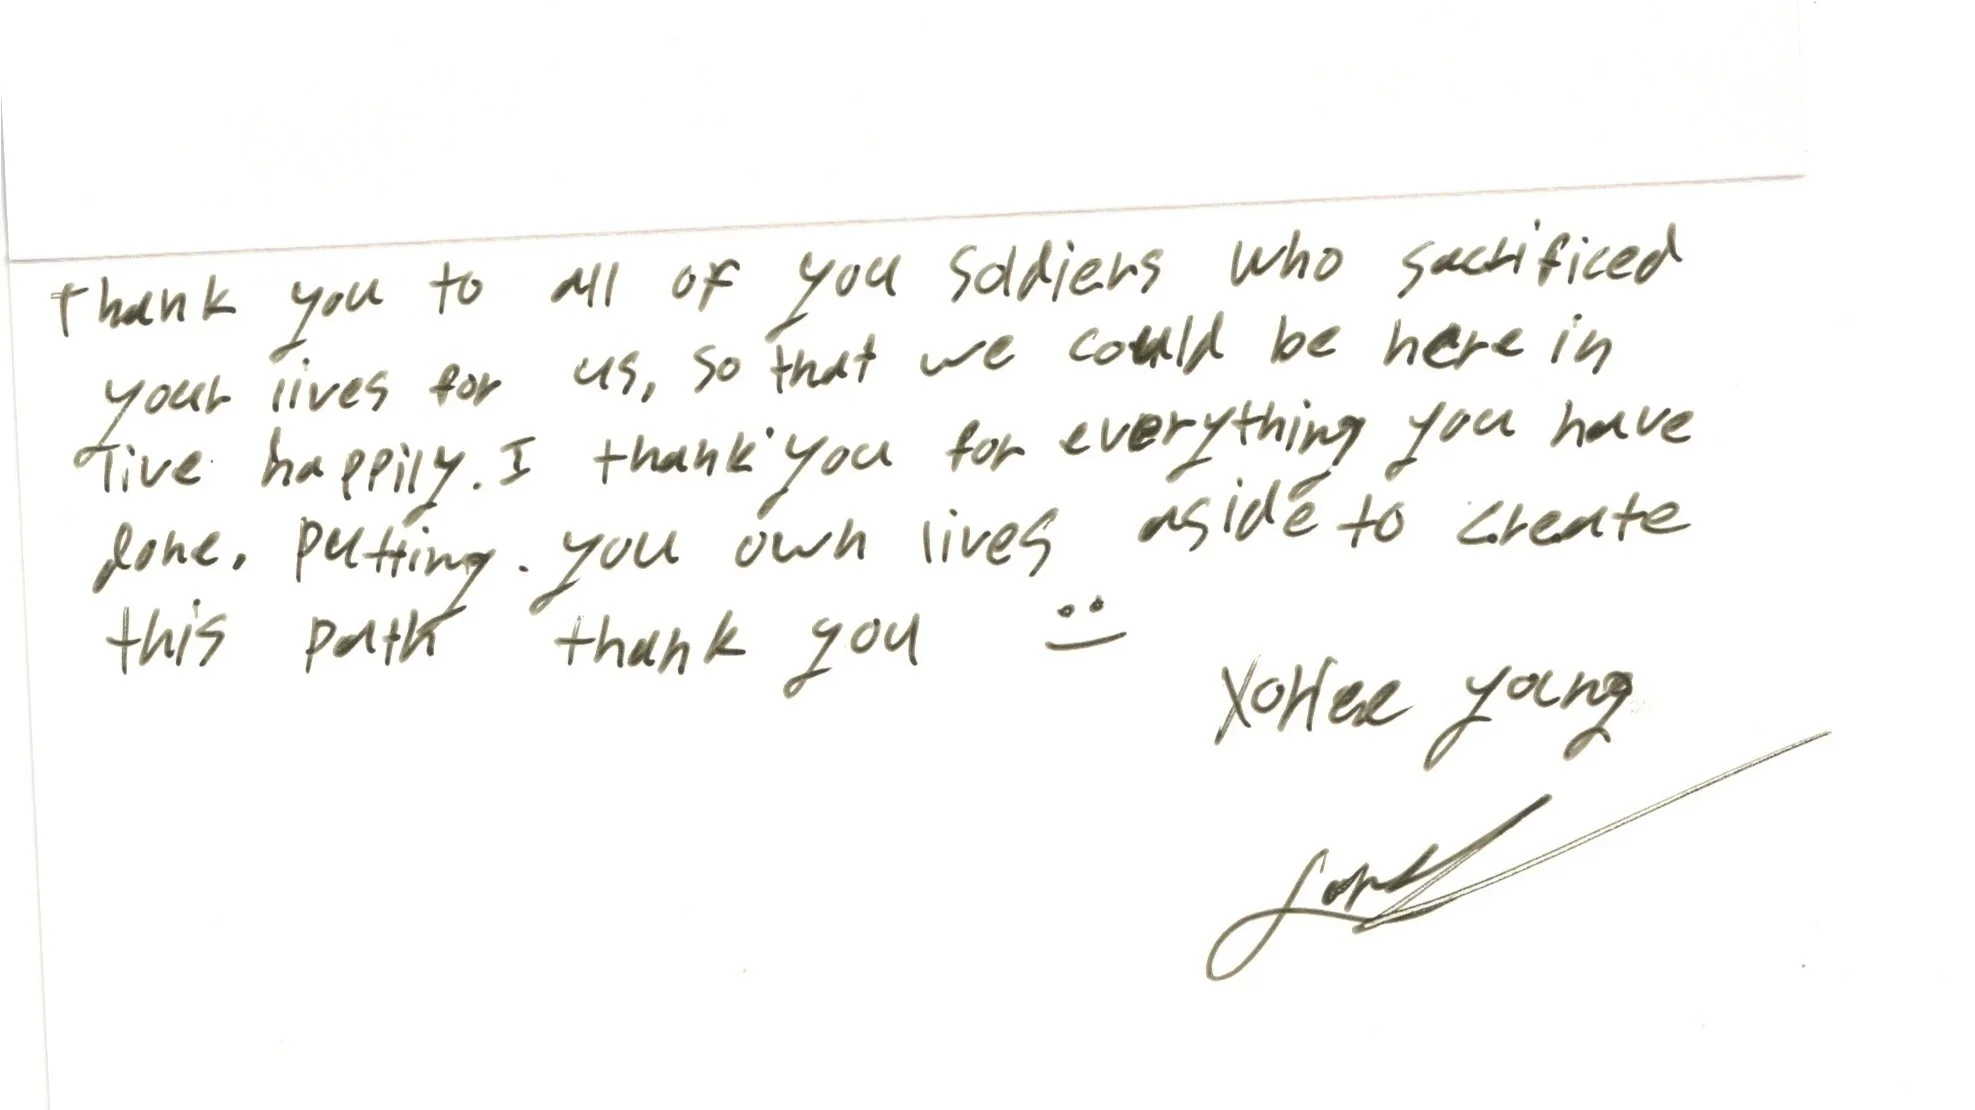 thank you to all of you soldiers who sacrificed
your lives for us, so that we could be here in
live happily. I thank you for everything you have
done. putting. you own lives aside to create
this path thank you :)
young